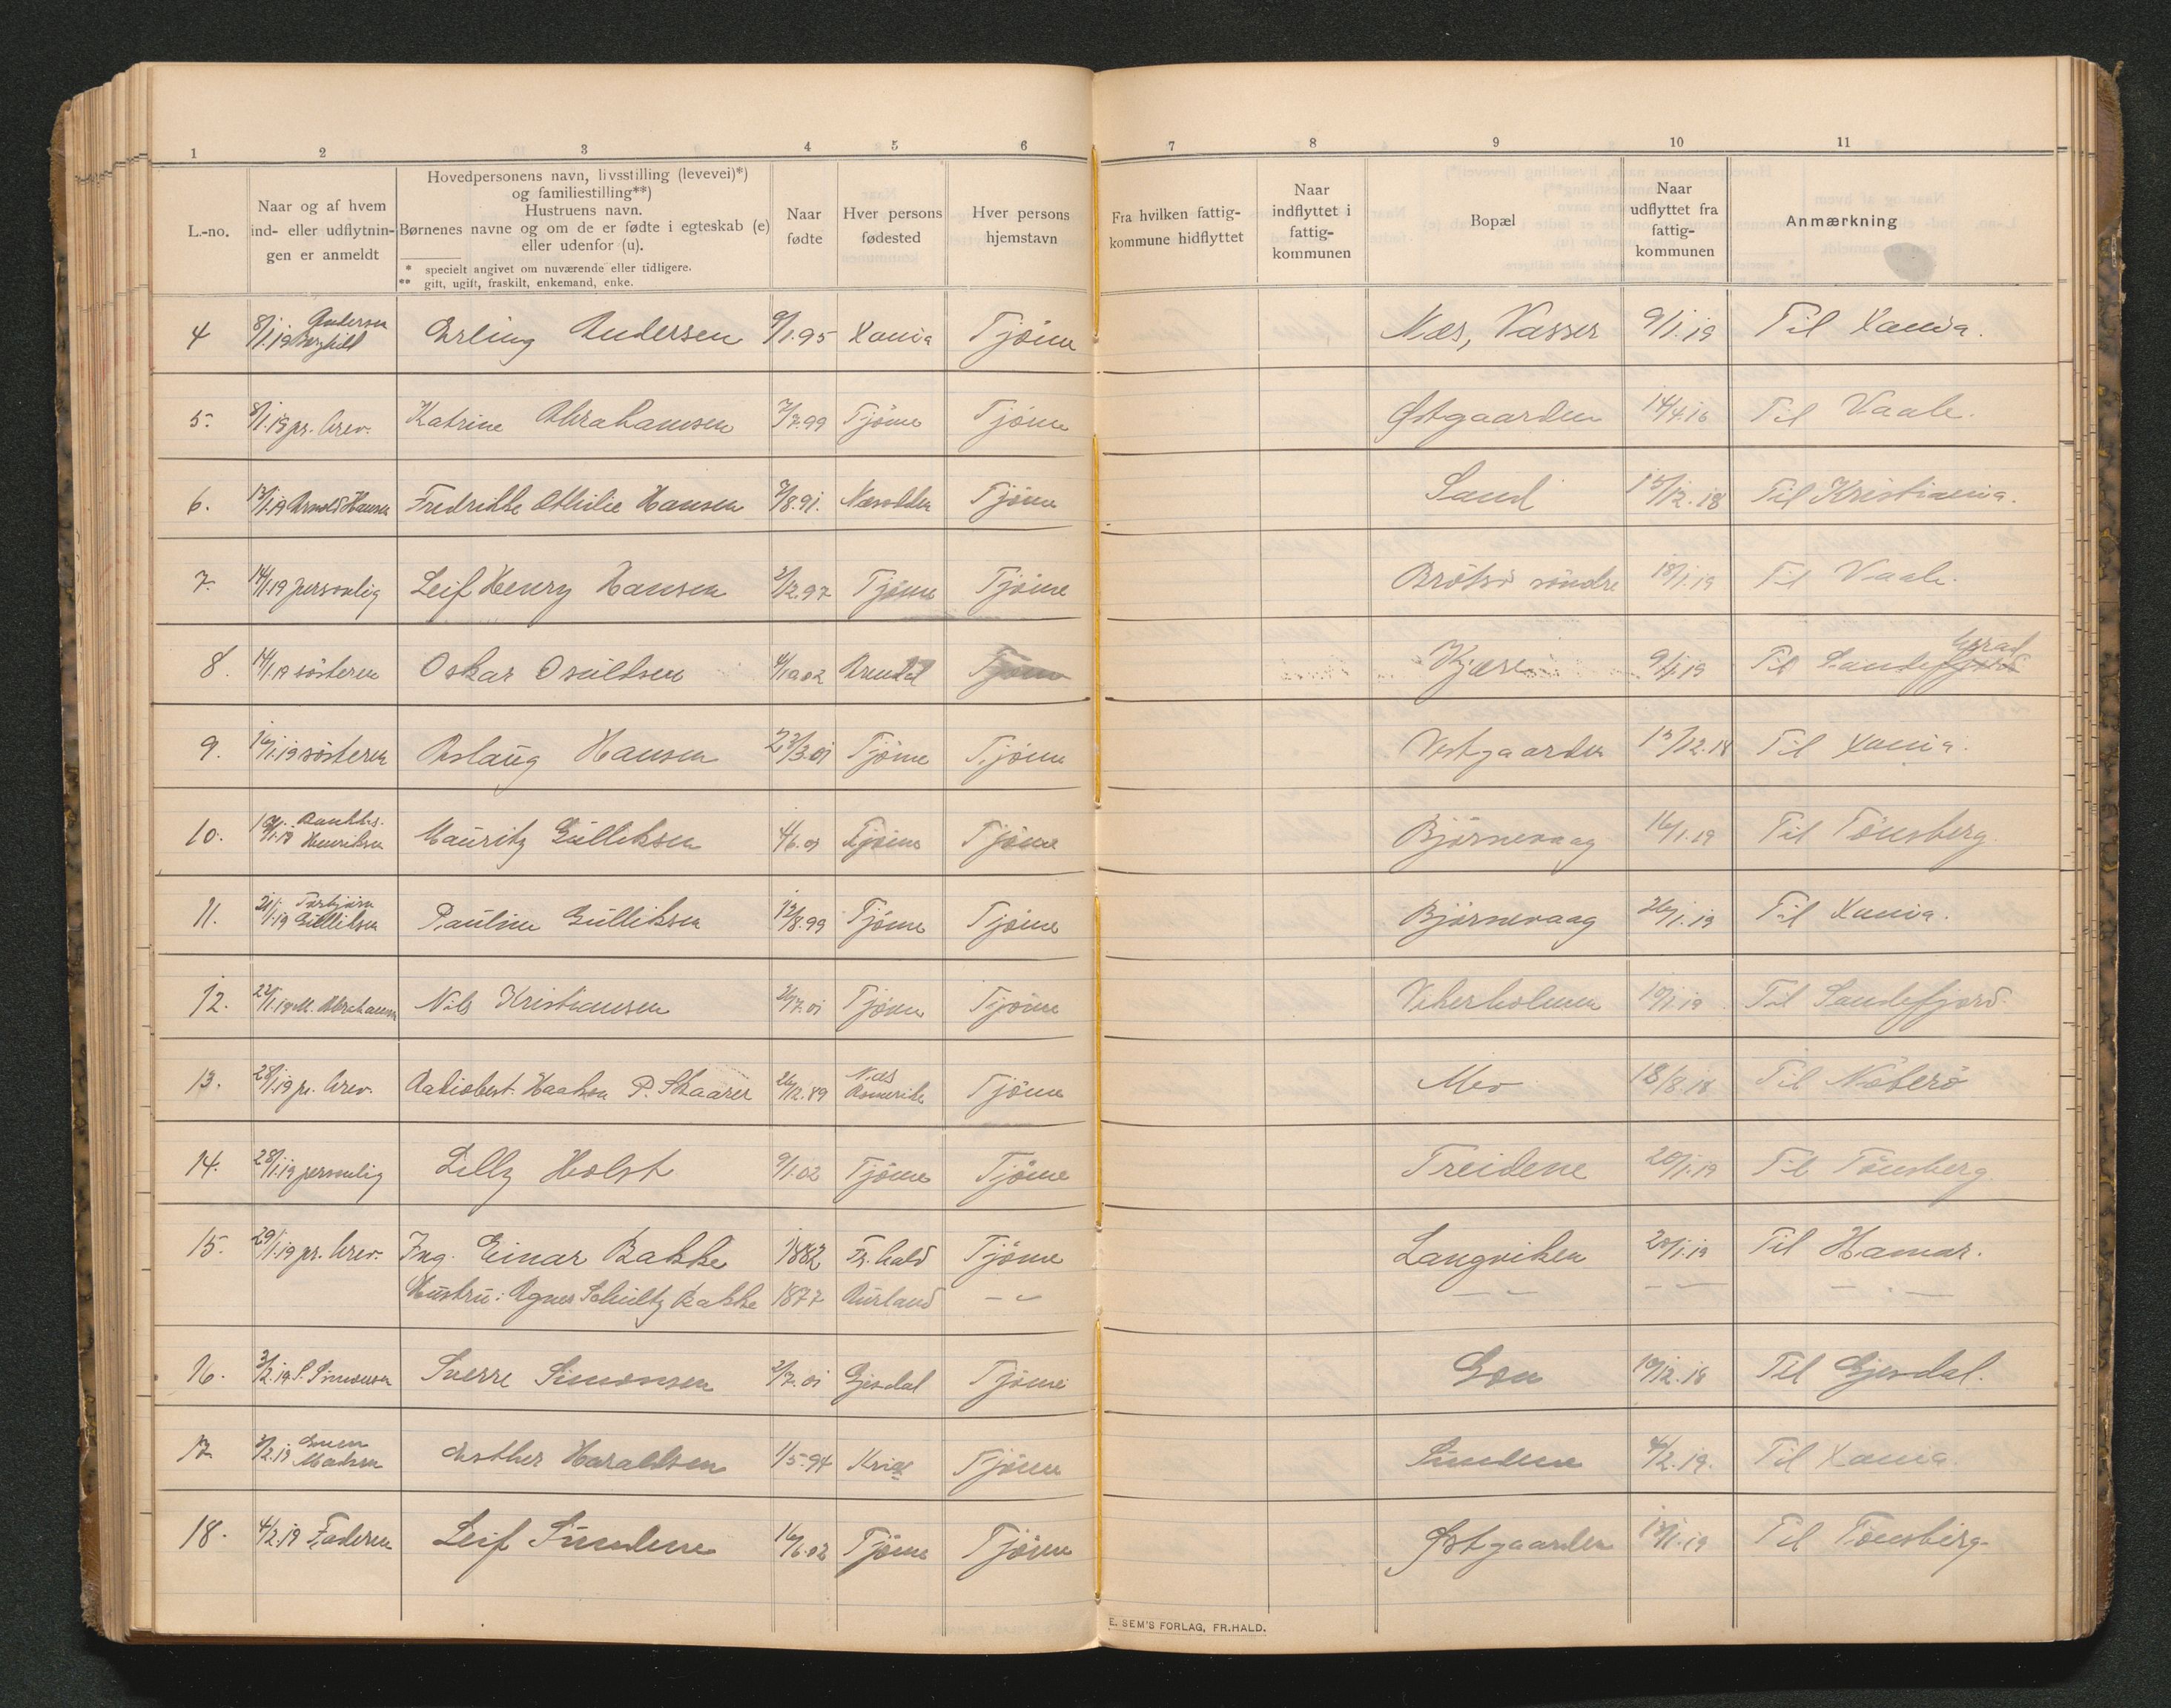 1 2 3 4 5 6 7 8 9 10 11
L.-no.
Naar og af hvem
ind- eller udflytnin-
gen er anmeldt
Hovedpersonens navn, livsstilling (levevei)*)
og familiestilling**)
Hustruens navn.
Børnenes navne og om de er fødte i egteskab (e)
eller udenfor (u).
* specielt angivet om nuværende eller tidligere.
** gift, ugift, fraskilt, enkemand, enke.
Naar
fødte
Hver persons
fødested
Hver persons
hjemstavn
Fra hvilken fattig-
kommune hidflyttet
Naar
indflyttet i
fattig-
kommunen
Bopæl
Naar
udflyttet fra
fattig-
kommunen
Anmærkning
Andersen
4 8/1.19 Erling Andersen 9/1.95 Xania Tjöme Næs, Vasser 9/1.19 Til Xania.
5. 8/1.19 pr. brev. Katrine Abrahamsen 7/7.99 Tjöme Tjöme Østgaarden 14/4.16 Til Vaale.
6. 13/1.19 Arnold Hansen Fredrikke Othilie Hansen 7/8.91. Næsodden Tjöme Sand 15/12.18 Til Kristiania.
7. 14/1.19 personlig Leif Henry Hansen 3/12.97 Tjöme Tjöme Brötsö söndre 18/1.19 Til Vaale.
8. 14/1.19 søsteren Oskar Osuldsen 4/10.02 Arendal Tjöme Kjære 9/1.19 Til Sandefjord
9. 16/1.19 søsteren Aslaug Hansen 23/3.01 Tjöme Tjöme Vestgaarden 15/12.18 Til Xania.
10. 19/1.19 Henriksen Mauritz Gulliksen 4/6.01 Tjöme Tjöme Björnevaag 16/1.19 Til Tönsberg
Torbjörn
11. 21/1.19 Gulliksen Pauline Gulliksen 13/8.99 Tjöme Tjöme Björnevaag 26/1.19 Til Xania.
12. 22/1.19 M. Abrahamsen Nils Kristiansen 26/7.01 Tjöme Tjöme Vekerholmen 19/1.19 Til Sandefjord.
Næs
13. 28/1.19 pr. brev. Radiobest. Haakon P. Skaarer 26/12.89 Romerike Tjöme Mev 18/8.18 Til Nöterö
14. 28/1.19 personlig Lilly Holst 9/1.02 Tjöme Tjöme Treidene 20/1.19 Til Tönsberg
15. 29/1.19 pr. brev. Ing. Einar Bakke 1882 Fr.hald Tjöme Langviken 20/1.19 Til Hamar.
Hustru: Agnes Schultz Bakke 1877 Aurland — — — — — — — —
16. 3/2.19 S. Simonsen Sverre Simonsen 2/7.01 Gjesdal Tjöme Gon 10/12.18 Til Gjesdal.
17. 3/2.19 Madsen Esther Haraldsen 1/5.94 Kria Tjöme Sundene 4/2.19. Til Xania
18. 4/2.19 Faderen Leif Sundene 16/6.02 Tjöme Tjöme Østgaarden 13/1.19 Til Tönsberg.
E. SEM'S FORLAG, FR.HALD.